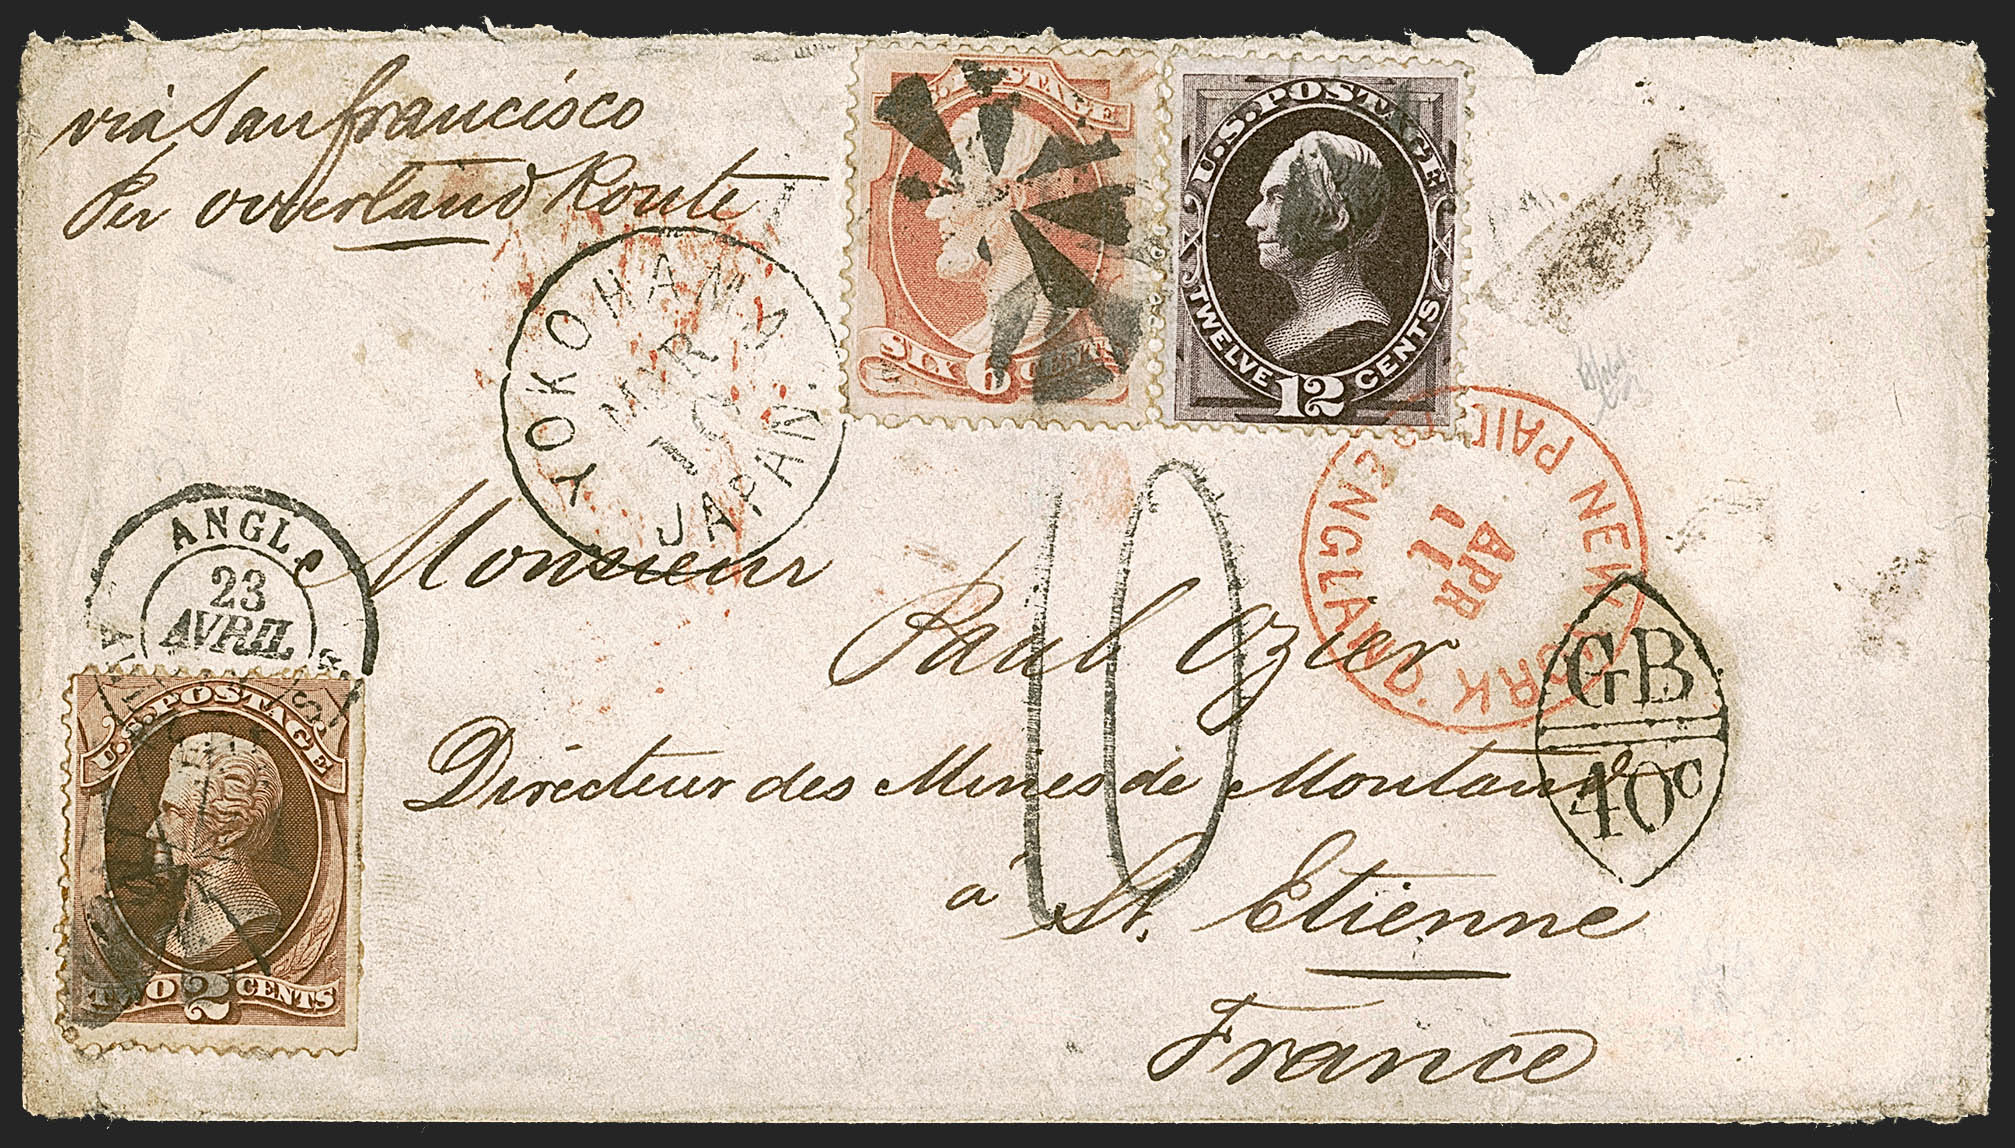 via San francisco
Per overland Route
U.S. POSTAGE
SIX 6 CENTS
U.S. POSTAGE
TWELVE 12 CENTS
YOKOHAMA
MAR
JAPAN.
NEW YORK
PAID
ENGLAND
APR
11
ANGL
23
AVRIL
10
GB
40c
Monsieur
Paul Ozier
Directeur des Mines de
à St. Etienne
France
U.S. POSTAGE
TWO 2 CENTS